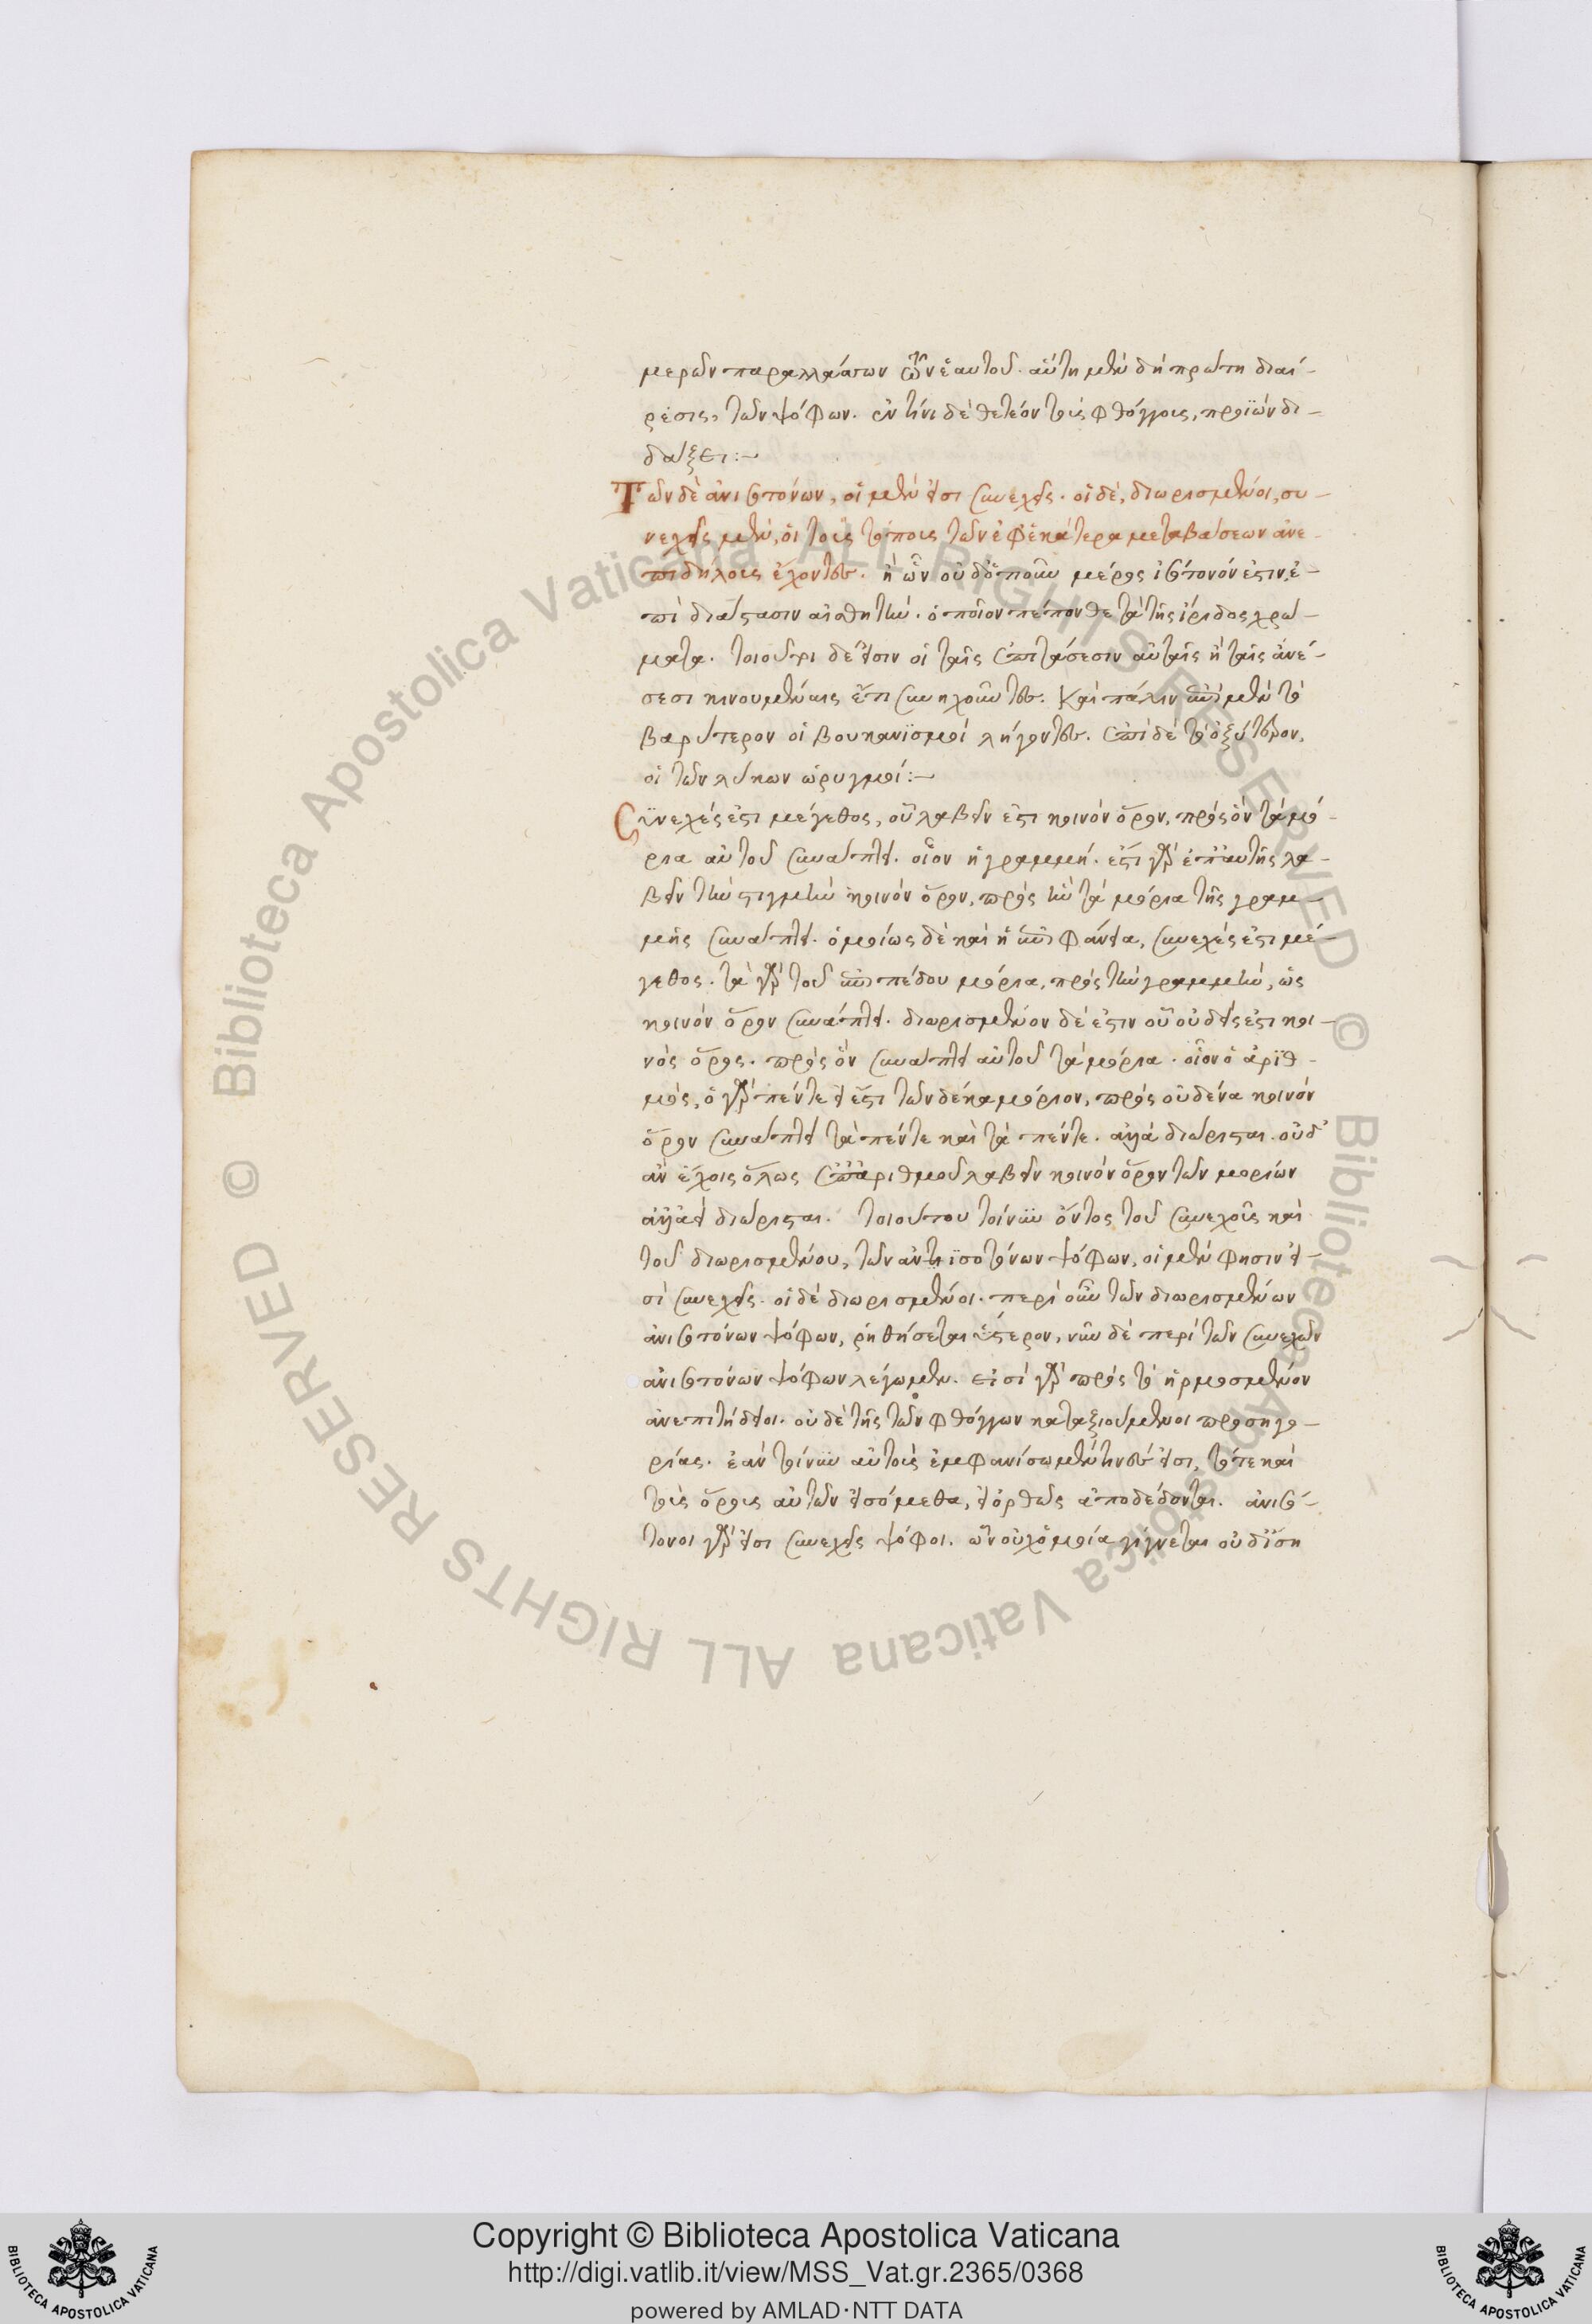 μερῶν παραλλάττων τῶν ἑαυτοῦ. αὕτη μὲν δὴ πρώτη διαί-
ρεσις, τῶν ψόφων. ἐν τίνι δὲ θετέον τοὺς φθόγγους, προϊὼν δι-
δάξει:~
Τῶν δὲ ἀνισοτόνων, οἱ μέν εἰσι συνεχεῖς. οἱ δὲ, διωρισμένοι, συ-
νεχεῖς μὲν, οἱ τοὺς τόπους τῶν ἐφ' ἑκάτερα μεταβάσεων ἀνε-
πιδήλους ἔχοντες. ἢ ὧν οὐδ' ὁποιοῦν μέρος ἰσότονόν ἐστιν ἐ-
πὶ διάστασιν αἰσθητήν. ὁποῖον πέπονθε τὰ τῆς ἴριδος χρώ-
ματα. τοιοῦτοι δέ εἰσιν οἱ ταῖς ἐπιτάσεσιν αὐταῖς ἢ ταῖς ἀνέ-
σεσι κινουμέναις ἔτι συνηχοῦντες. καὶ πάλιν ἐπὶ μὲν τὸ
βαρύτερον οἱ βουκανισμοὶ λήγοντες. ἐπὶ δὲ τὸ ὀξύτερον,
οἱ τῶν λύκων ὠρυγμοί:~
Συνεχές ἐστι μέγεθος, οὗ λαβεῖν ἔστι κοινὸν ὅρον, πρὸς ὃν τὰ μό-
ρια αὐτοῦ συνάπτει. οἷον ἡ γραμμή. ἔστι γὰρ ἐπ' αὐτῆς λα-
βεῖν τὴν στιγμὴν κοινὸν ὅρον, πρὸς ἣν τὰ μόρια τῆς γραμ-
μῆς συνάπτει. ὁμοίως δὲ καὶ ἡ ἐπιφάνεια, συνεχές ἐστι μέ-
γεθος. τὰ γὰρ τοῦ ἐπιπέδου μόρια, πρὸς τὴν γραμμὴν, ὡς
κοινὸν ὅρον συνάπτει. διωρισμένον δέ ἐστιν οὗ οὐδείς ἐστι κοι-
νὸς ὅρος. πρὸς ὃν συνάπτει αὐτοῦ τὰ μόρια. οἷον ὁ ἀριθ-
μός, ὁ γὰρ πέντε εἰ ἔστι τῶν δέκα μόριον, πρὸς οὐδένα κοινὸν
ὅρον συνάπτει τὰ πέντε καὶ τὰ πέντε. ἀλλὰ διώρισται. οὐδ'
ἂν ἔχοις ὅλως ἐπ' ἀριθμοῦ λαβεῖν κοινὸν ὅρον τῶν μορίων
ἀλλ' ἀεὶ διώρισται. τοιούτου τοίνυν ὄντος τοῦ συνεχοῦς καὶ
τοῦ διωρισμένου, τῶν ἀντιϊσοτόνων ψόφων, οἱ μὲν φησιν εἰ-
σὶ συνεχεῖς. οἱ δὲ διωρισμένοι. περὶ οὖν τῶν διωρισμένων
ἀνισοτόνων ψόφων, ῥηθήσεται ὕστερον, νῦν δὲ περὶ τῶν συνεχῶν
ἀνισοτόνων ψόφων λέγωμεν. εἰσὶ γὰρ πρὸς τὸ ἡρμοσμένον
ἀνεπιτήδειοι. οὐδὲ τῆς τῶν φθόγγων καταξιούμενοι προσηγο-
ρίας. ἐὰν τοίνυν αὐτοὺς ἐμφανίσωμεν τίνες εἰσι, τότε καὶ
τοὺς ὅρους αὐτῶν εἰσόμεθα, εἰ ὀρθῶς ἀποδέδονται. ἀνισό-
τονοι γάρ εἰσι συνεχεῖς ψόφοι. ὧν οὐχ ὁμοία γίγνεται οὐδ' ἴση
Copyright © Biblioteca Apostolica Vaticana
http://digi.vatlib.it/view/MSS_Vat.gr.2365/0368
powered by AMLAD·NTT DATA
BIBLIOTECA APOSTOLICA VATICANA
BIBLIOTECA APOSTOLICA VATICANA
© Biblioteca Apostolica Vaticana ALL RIGHTS RESERVED © Biblioteca Apostolica Vaticana ALL RIGHTS RESERVED